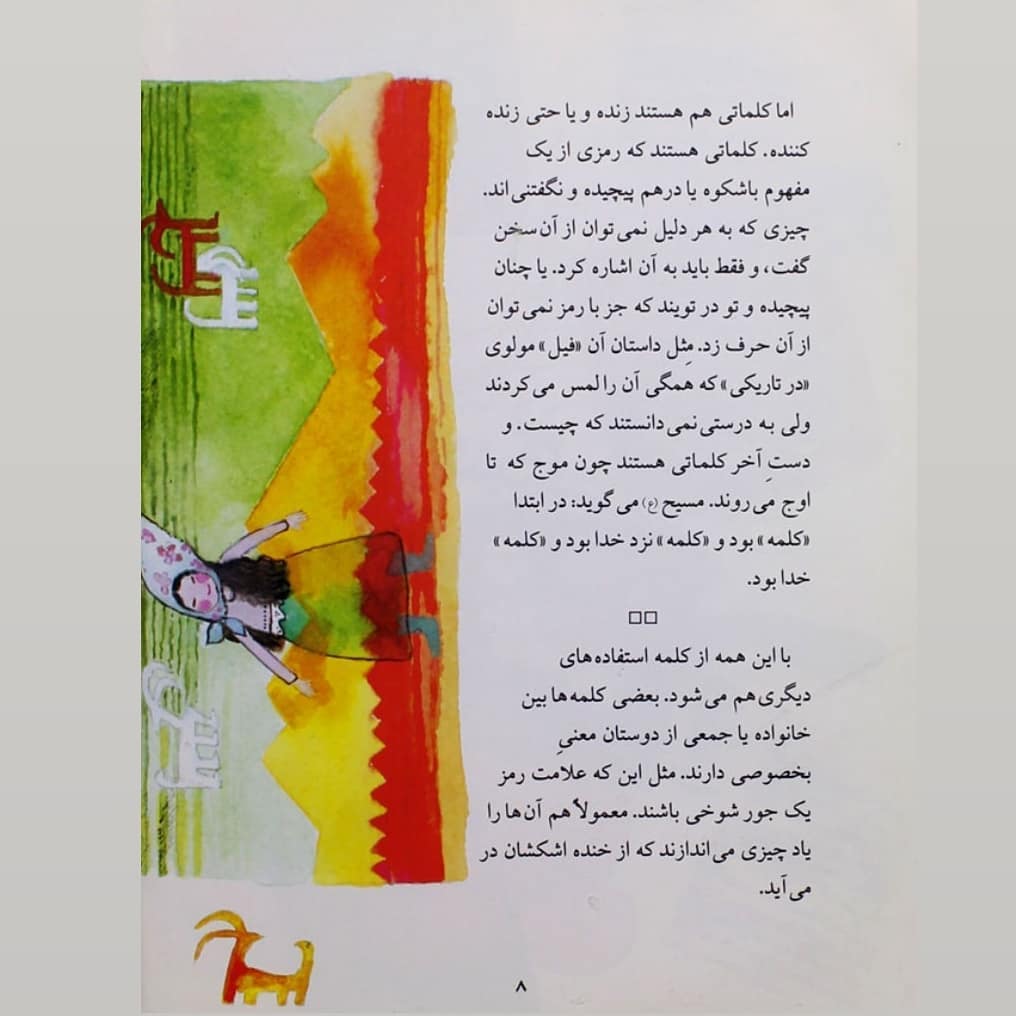 اما کلماتی هم هستند زنده و یا حتی زنده
کننده. کلماتی هستند که رمزی از یک
مفهوم باشکوه یا درهم پیچیده و نگفتنی‌اند.
چیزی که به هر دلیل نمی‌توان از آن سخن
گفت، و فقط باید به آن اشاره کرد. یا چنان
پیچیده و تو در تویند که جز با رمز نمی‌توان
از آن حرف زد. مِثل داستان آن «فیل» مولوی
«در تاریکی» که همگی آن را لمس می‌کردند
ولی به درستی نمی‌دانستند که چیست. و
دستِ آخر کلماتی هستند چون موج که تا
اوج می‌روند. مسیح (ع) می‌گوید: در ابتدا
«کلمه» بود و «کلمه» نزد خدا بود و «کلمه»
خدا بود.
□□
با این همه از کلمه استفاده‌های
دیگری هم می‌شود. بعضی کلمه‌ها بین
خانواده یا جمعی از دوستان معنیِ
بخصوصی دارند. مثل این که علامت رمز
یک جور شوخی باشند. معمولاً هم آن‌ها را
یاد چیزی می‌اندازند که از خنده اشکشان در
می‌آید.
۸